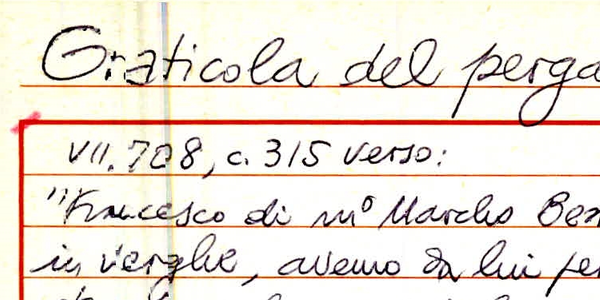 Graticola del perga
VII.708, c. 315 verso:
"Francesco di m° Marcho Ben
in verghe, avemo da lui per